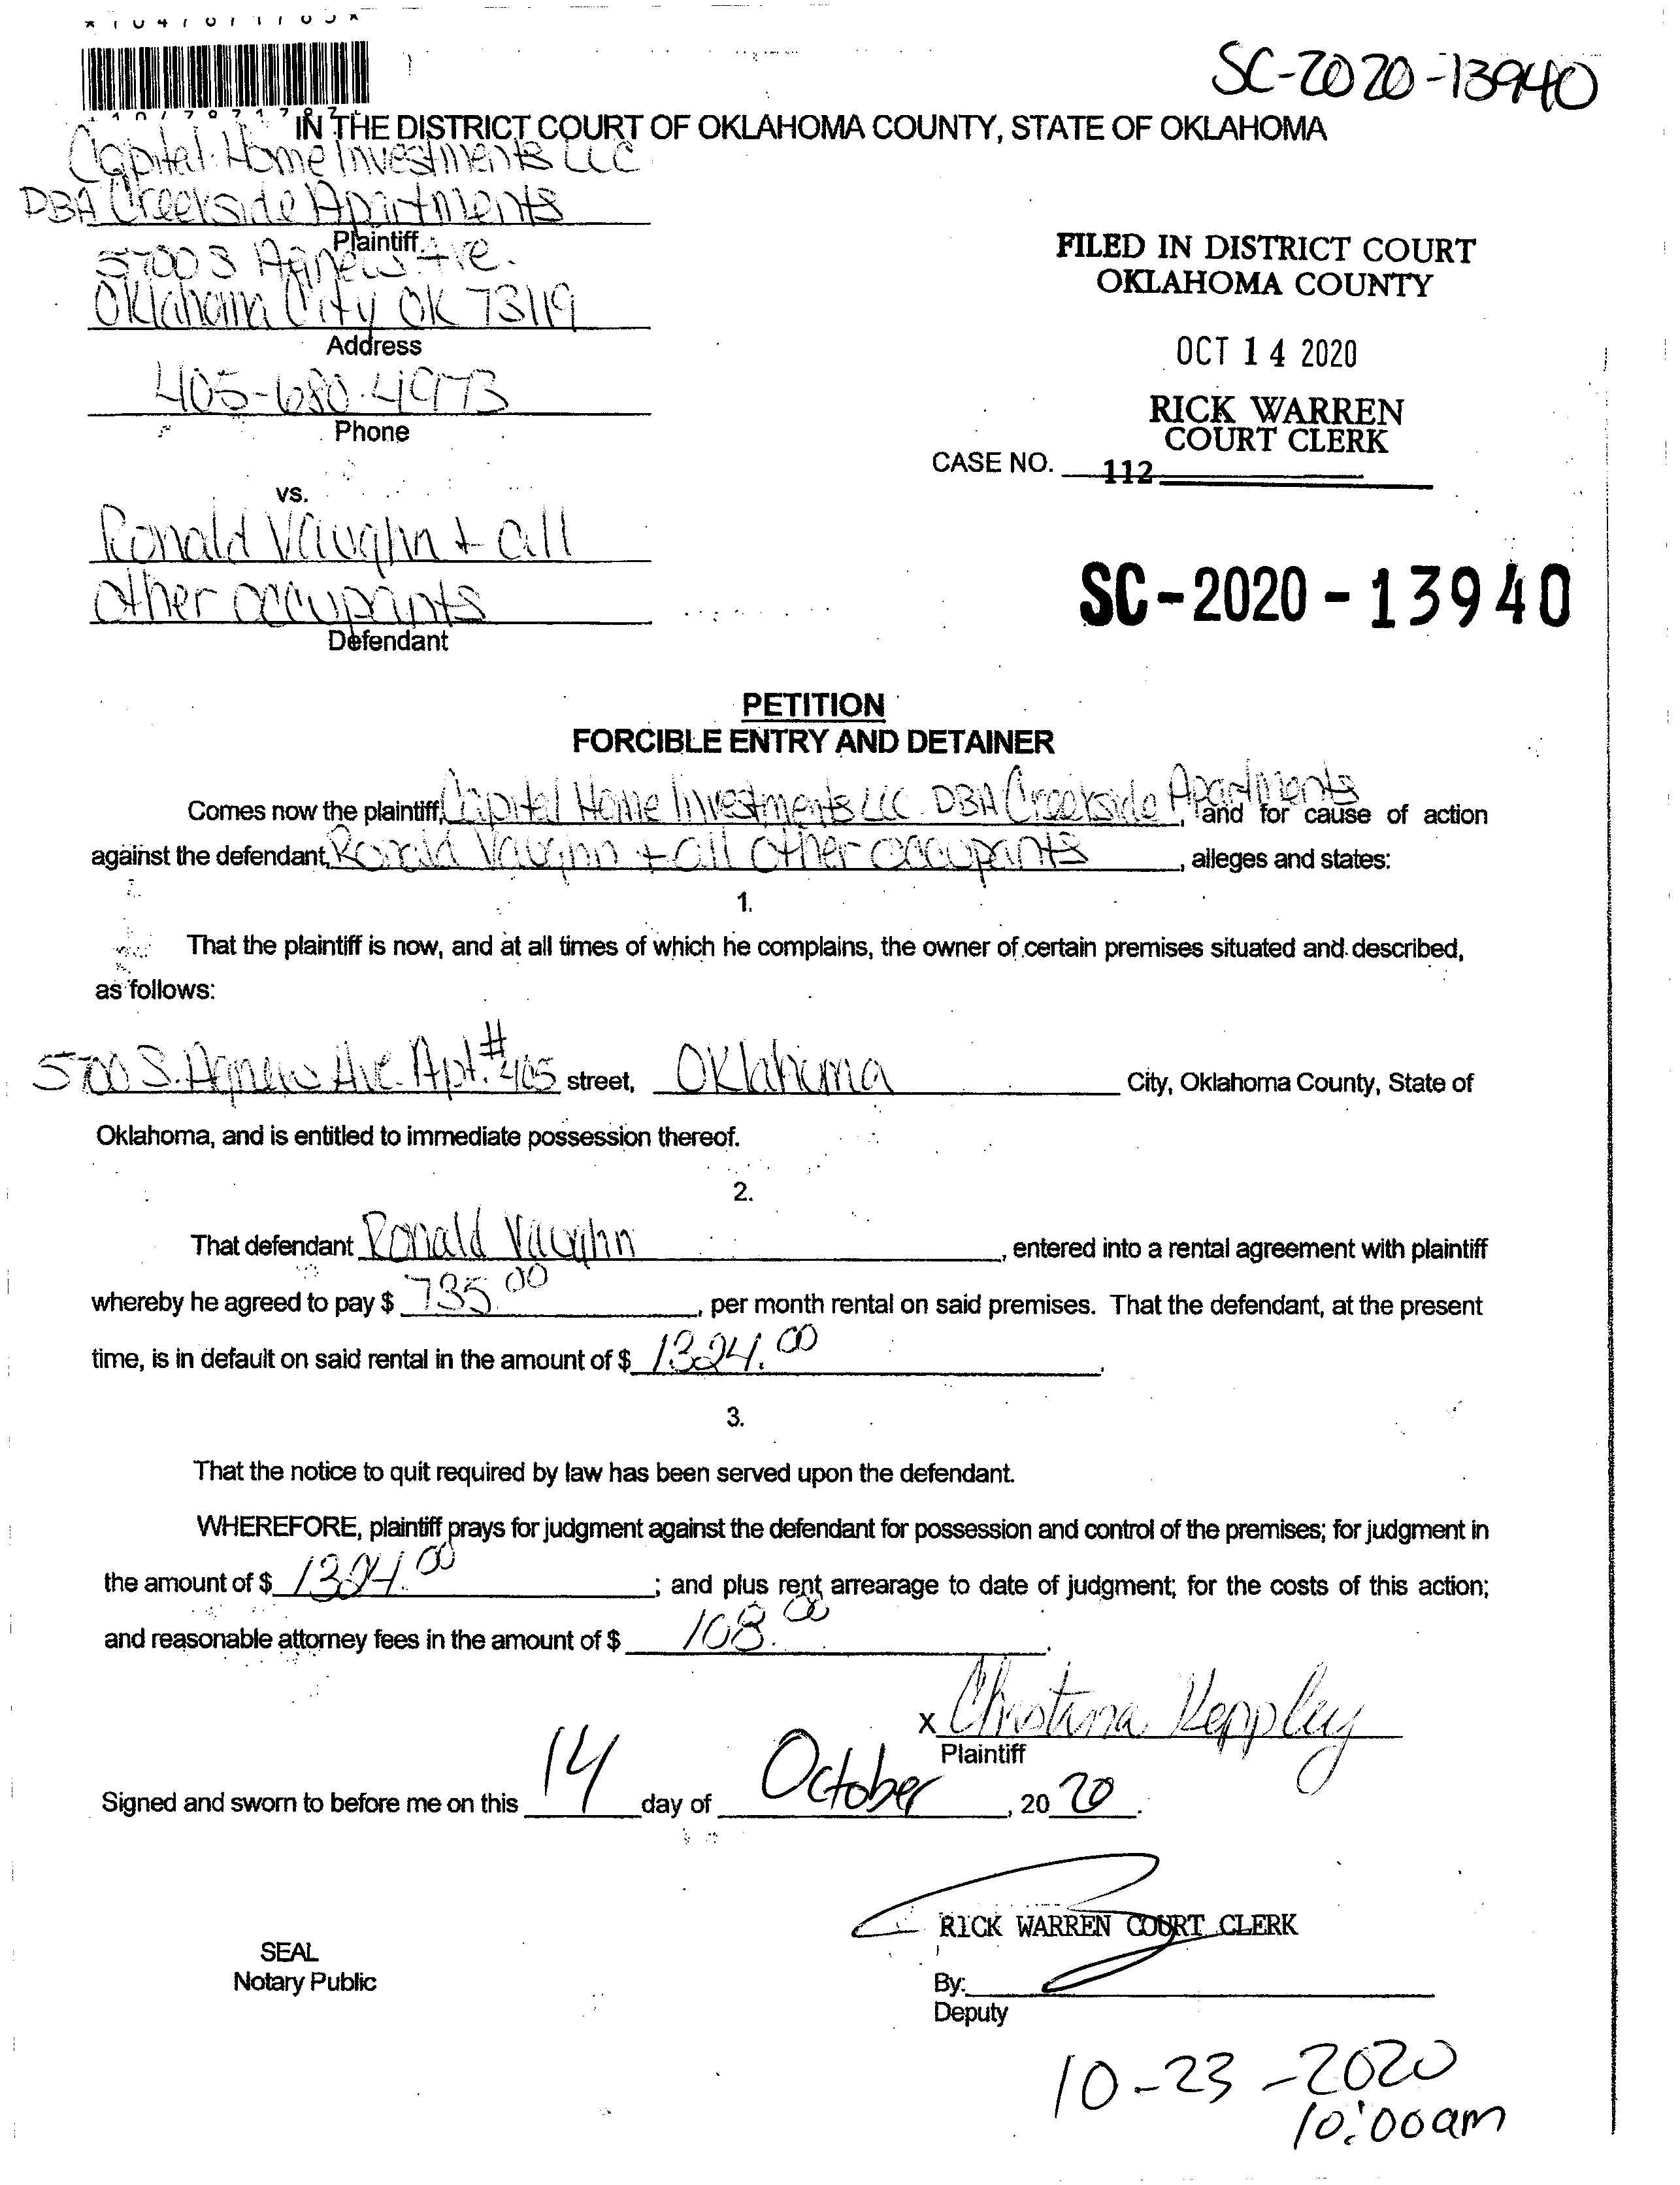 SC-2020-13940
IN THE DISTRICT COURT OF OKLAHOMA COUNTY, STATE OF OKLAHOMA
Capital Home Investments LLC
DBA Creekside Apartments
Plaintiff
5700 S Agnew Ave.
Oklahoma City OK 73119
Address
405-680-4973
Phone
FILED IN DISTRICT COURT
OKLAHOMA COUNTY
OCT 14 2020
RICK WARREN
COURT CLERK
CASE NO. 112
vs.
Ronald Vaughn + all
other occupants
Defendant
SC-2020-13940
PETITION
FORCIBLE ENTRY AND DETAINER
Comes now the plaintiff, Capital Home Investments LLC DBA Creekside Apartments, and for cause of action
against the defendant, Ronald Vaughn + all other occupants, alleges and states:
1.
That the plaintiff is now, and at all times of which he complains, the owner of certain premises situated and described,
as follows:
5700 S. Agnew Ave. Apt. #405 street, Oklahoma City, Oklahoma County, State of
Oklahoma, and is entitled to immediate possession thereof.
2.
That defendant Ronald Vaughn, entered into a rental agreement with plaintiff
whereby he agreed to pay $ 735.00, per month rental on said premises. That the defendant, at the present
time, is in default on said rental in the amount of $ 1324.00.
3.
That the notice to quit required by law has been served upon the defendant.
WHEREFORE, plaintiff prays for judgment against the defendant for possession and control of the premises; for judgment in
the amount of $ 1324.00; and plus rent arrearage to date of judgment; for the costs of this action;
and reasonable attorney fees in the amount of $ 108.00.
x Christina Keppley
Plaintiff
Signed and sworn to before me on this 14 day of October, 2020.
RICK WARREN COURT CLERK
SEAL
Notary Public
By:
Deputy
10-23-2020
10:00am